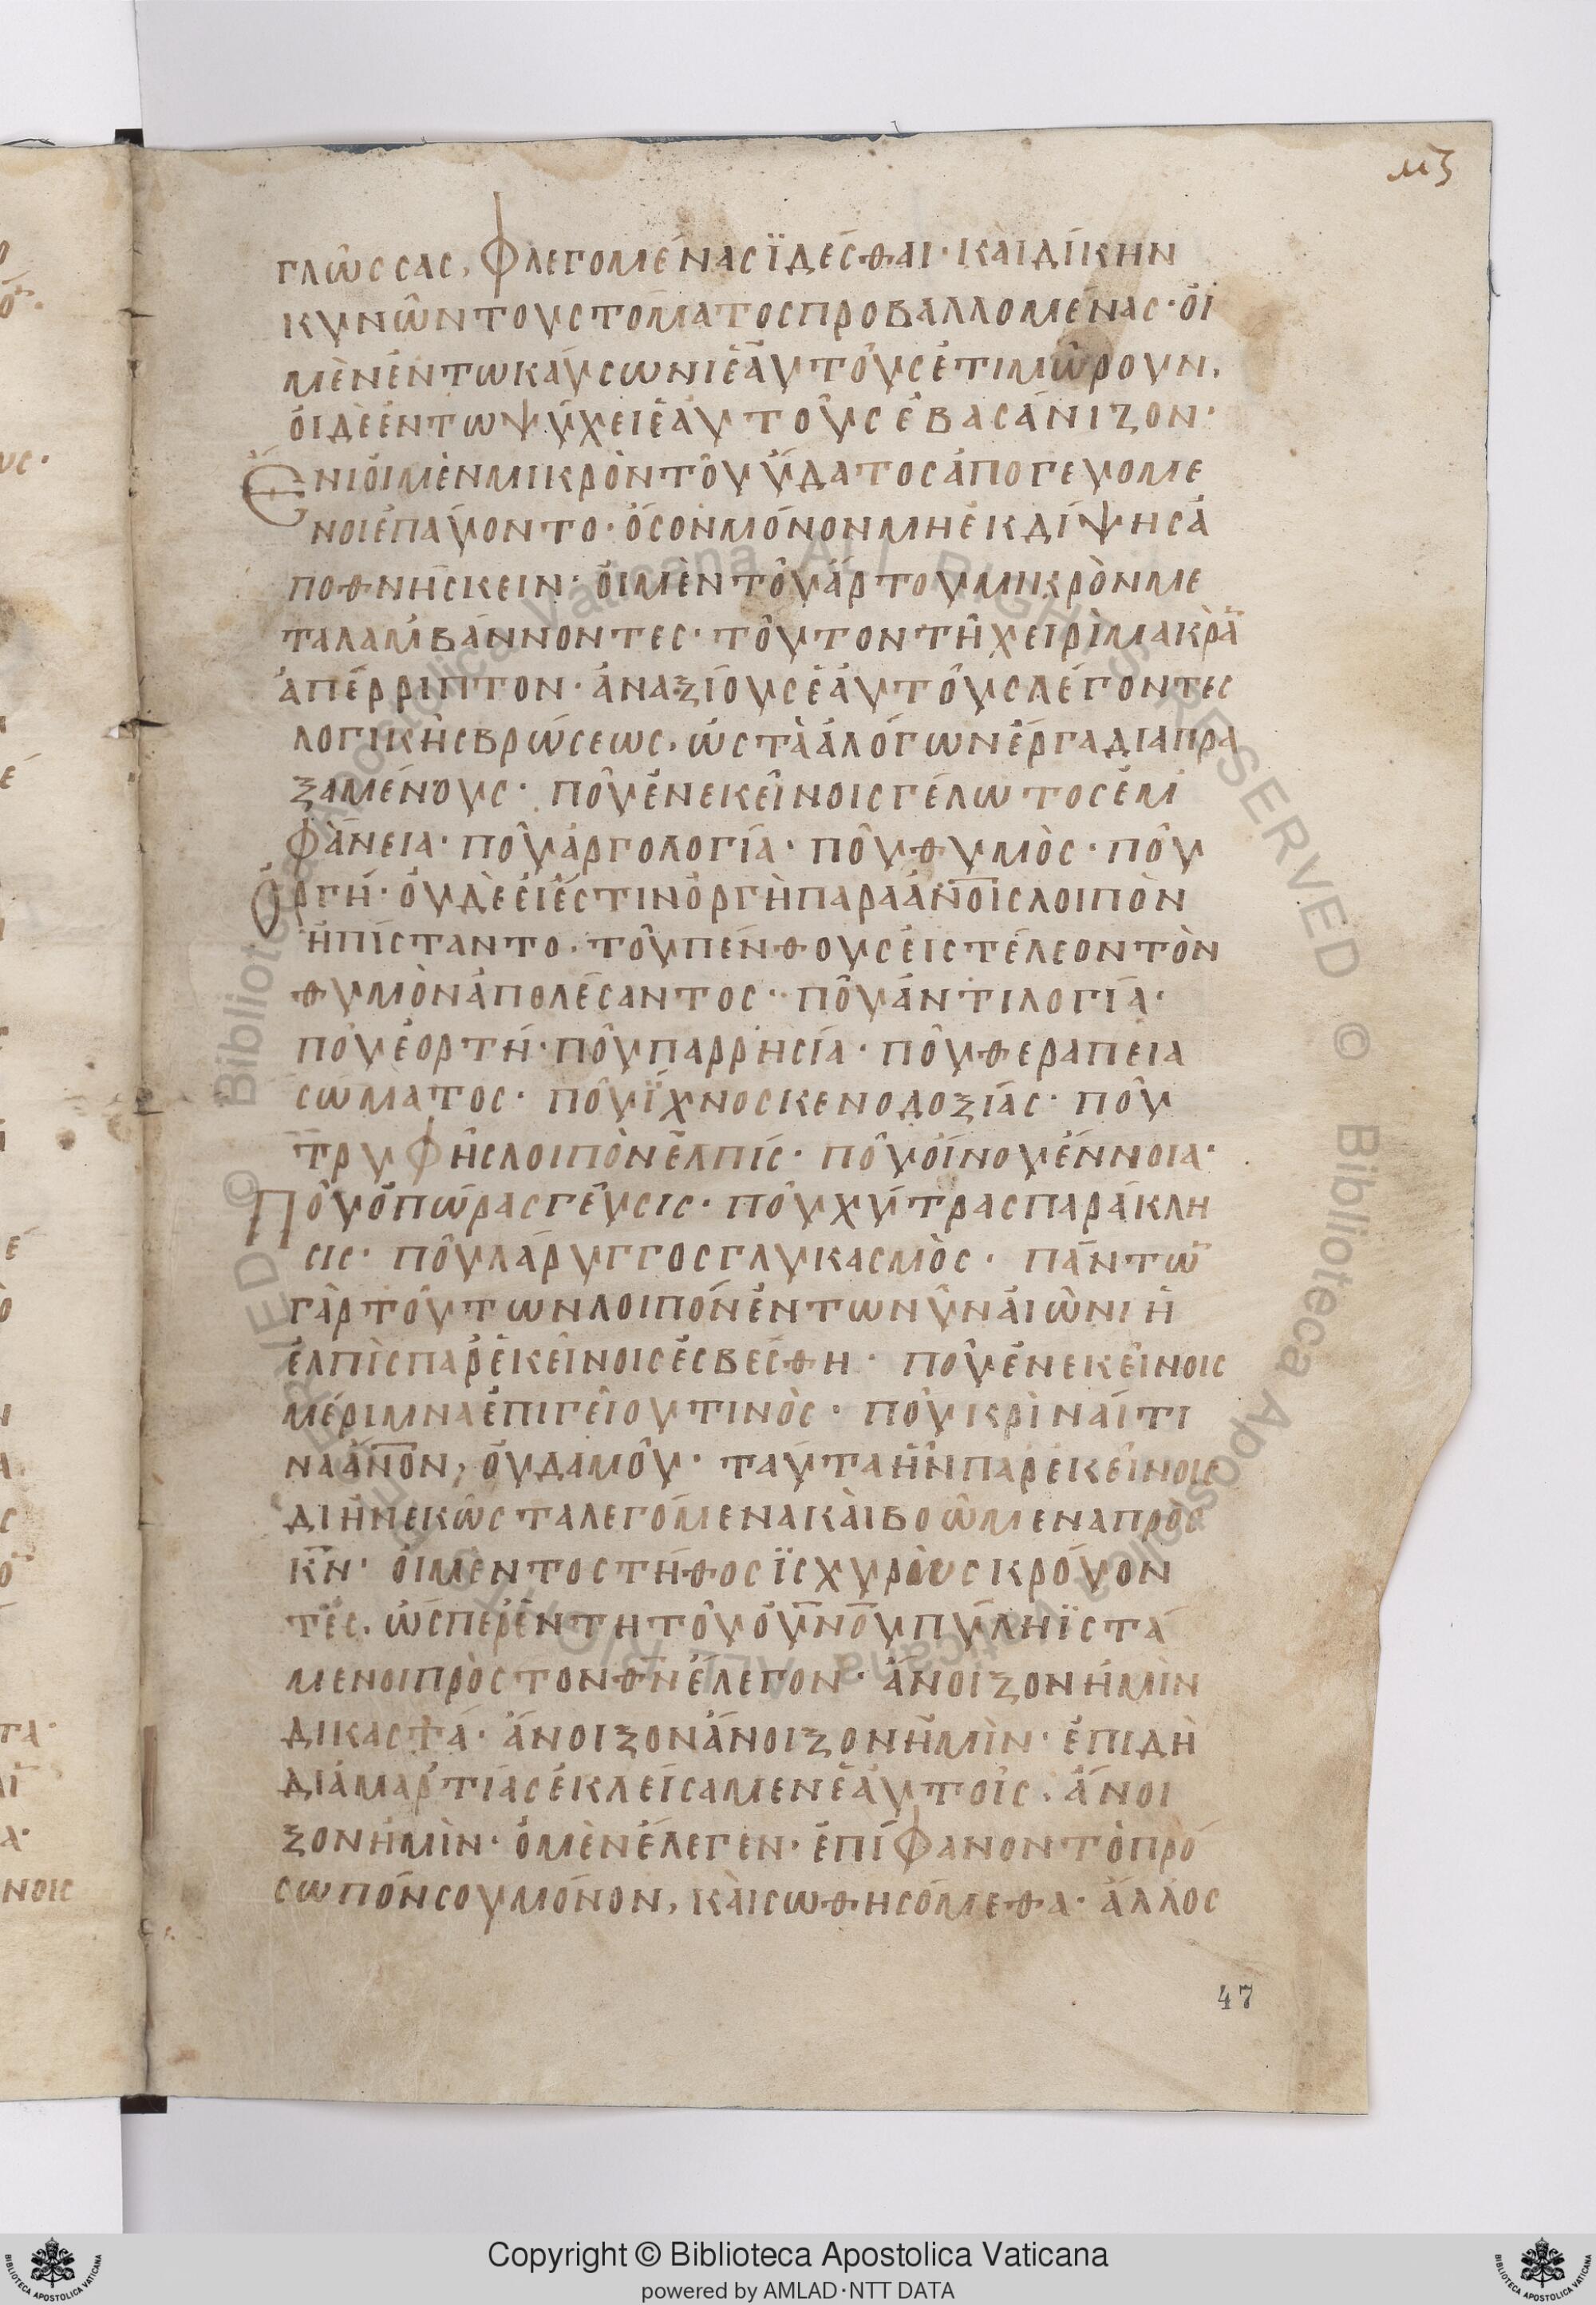 μζ
γλῶσσας, φλεγομένας ϊδέσθαι· καὶ δίκην
κυνῶν τοῦ στόματος προβαλλομένας· ὁι
μὲν ἐν τω καύσωνι ἑαυτοὺς ἐτιμώρουν,
ὁι δὲ ἐν τω ψύχει ἑαυτοὺς ἐβασάνιζον·
Ἔνιοι μὲν μικρὸν τοῦ ὕδατος ἀπογευομε
νοι ἐπαύοντο· ὅσον μόνον μη ἐκ δίψης ἀ
ποθνήσκειν· ὅι μὲν τοῦ ἄρτου μικρὸν με
ταλαμβάννοντες· τοῦτον τῆ χειρὶ μακρὰ̅
ἀπέρριπτον· ἀναξίους ἑαυτοὺς λέγοντες
λογικῆς βρώσεως, ὡς τὰ ἀλόγων ἔργα διαπρα
ξαμένους· ποῦ ἐν εκείνοις γέλωτος ἐμ
φάνεια· ποῦ ἀργολογία· ποῦ θυμὸς· ποῦ
Ὀργή· ὀυδὲ εἰ ἔστιν ὀργὴ παρα ἀν̅ο̅ις λοιπὸν
ἠπίσταντο, τοῦ πένθους εἰς τέλεον τὸν
θυμὸν ἀπολέσαντος· ποῦ ἀντιλογία·
ποῦ ἑορτή· ποῦ παρρησία· ποῦ θεραπεια
σώματος· ποῦ ἴχνος κενοδοξίας· ποῦ
τρυφῆς λοιπὸν ἐλπίς· ποῦ οἴνου ἔννοια·
Ποῦ ὀπώρας γεῦσις· ποῦ χύτρας παράκλη
σις· ποῦ λάρυγγος γλυκασμὸς· πάντω̅
γὰρ τούτων λοιπόν ἐν τω νῦν ἀιῶνι ἡ
ἐλπὶς παρ ἐκείνοις ἐσβέσθη· ποῦ ἐν εκείνοις
μέριμνα ἐπιγείου τινὸς· ποῦ κρὶναί τι
να ἄν̅ο̅ν, ὀυδαμοῦ· ταῦτα ἦν παρ ἐκείνοις
διηνεκῶς τα λεγόμενα κὰι βοώμενα πρὸς
κ̅ν̅· ὁι μὲν το στήθος ϊσχυρῶς κρόυον
τες, ὥσπερ ἐν τη τοῦ ὀυ̅ν̅ο̅ῦ πύλη ϊστά
μενοι πρὸς τον θ̅ν̅ ἔλεγον· ἄνοιξον ἡμὶν
δικαστά· ἄνοιξον ἄνοιξον ἡμὶν· ἐπιδὴ
δι ἁμαρτίας ἐκλείσαμεν ἑαυτοὶς, ἄνοι
ξον ἡμὶν· ὁ μὲν ἔλεγεν· ἐπίφανον τὸ πρό
σωπόν σου μόνον, κὰι σωθησόμεθα· ἄλλος
47
© Biblioteca Apostolica Vaticana ALL RIGHTS RESERVED
Copyright © Biblioteca Apostolica Vaticana
powered by AMLAD·NTT DATA